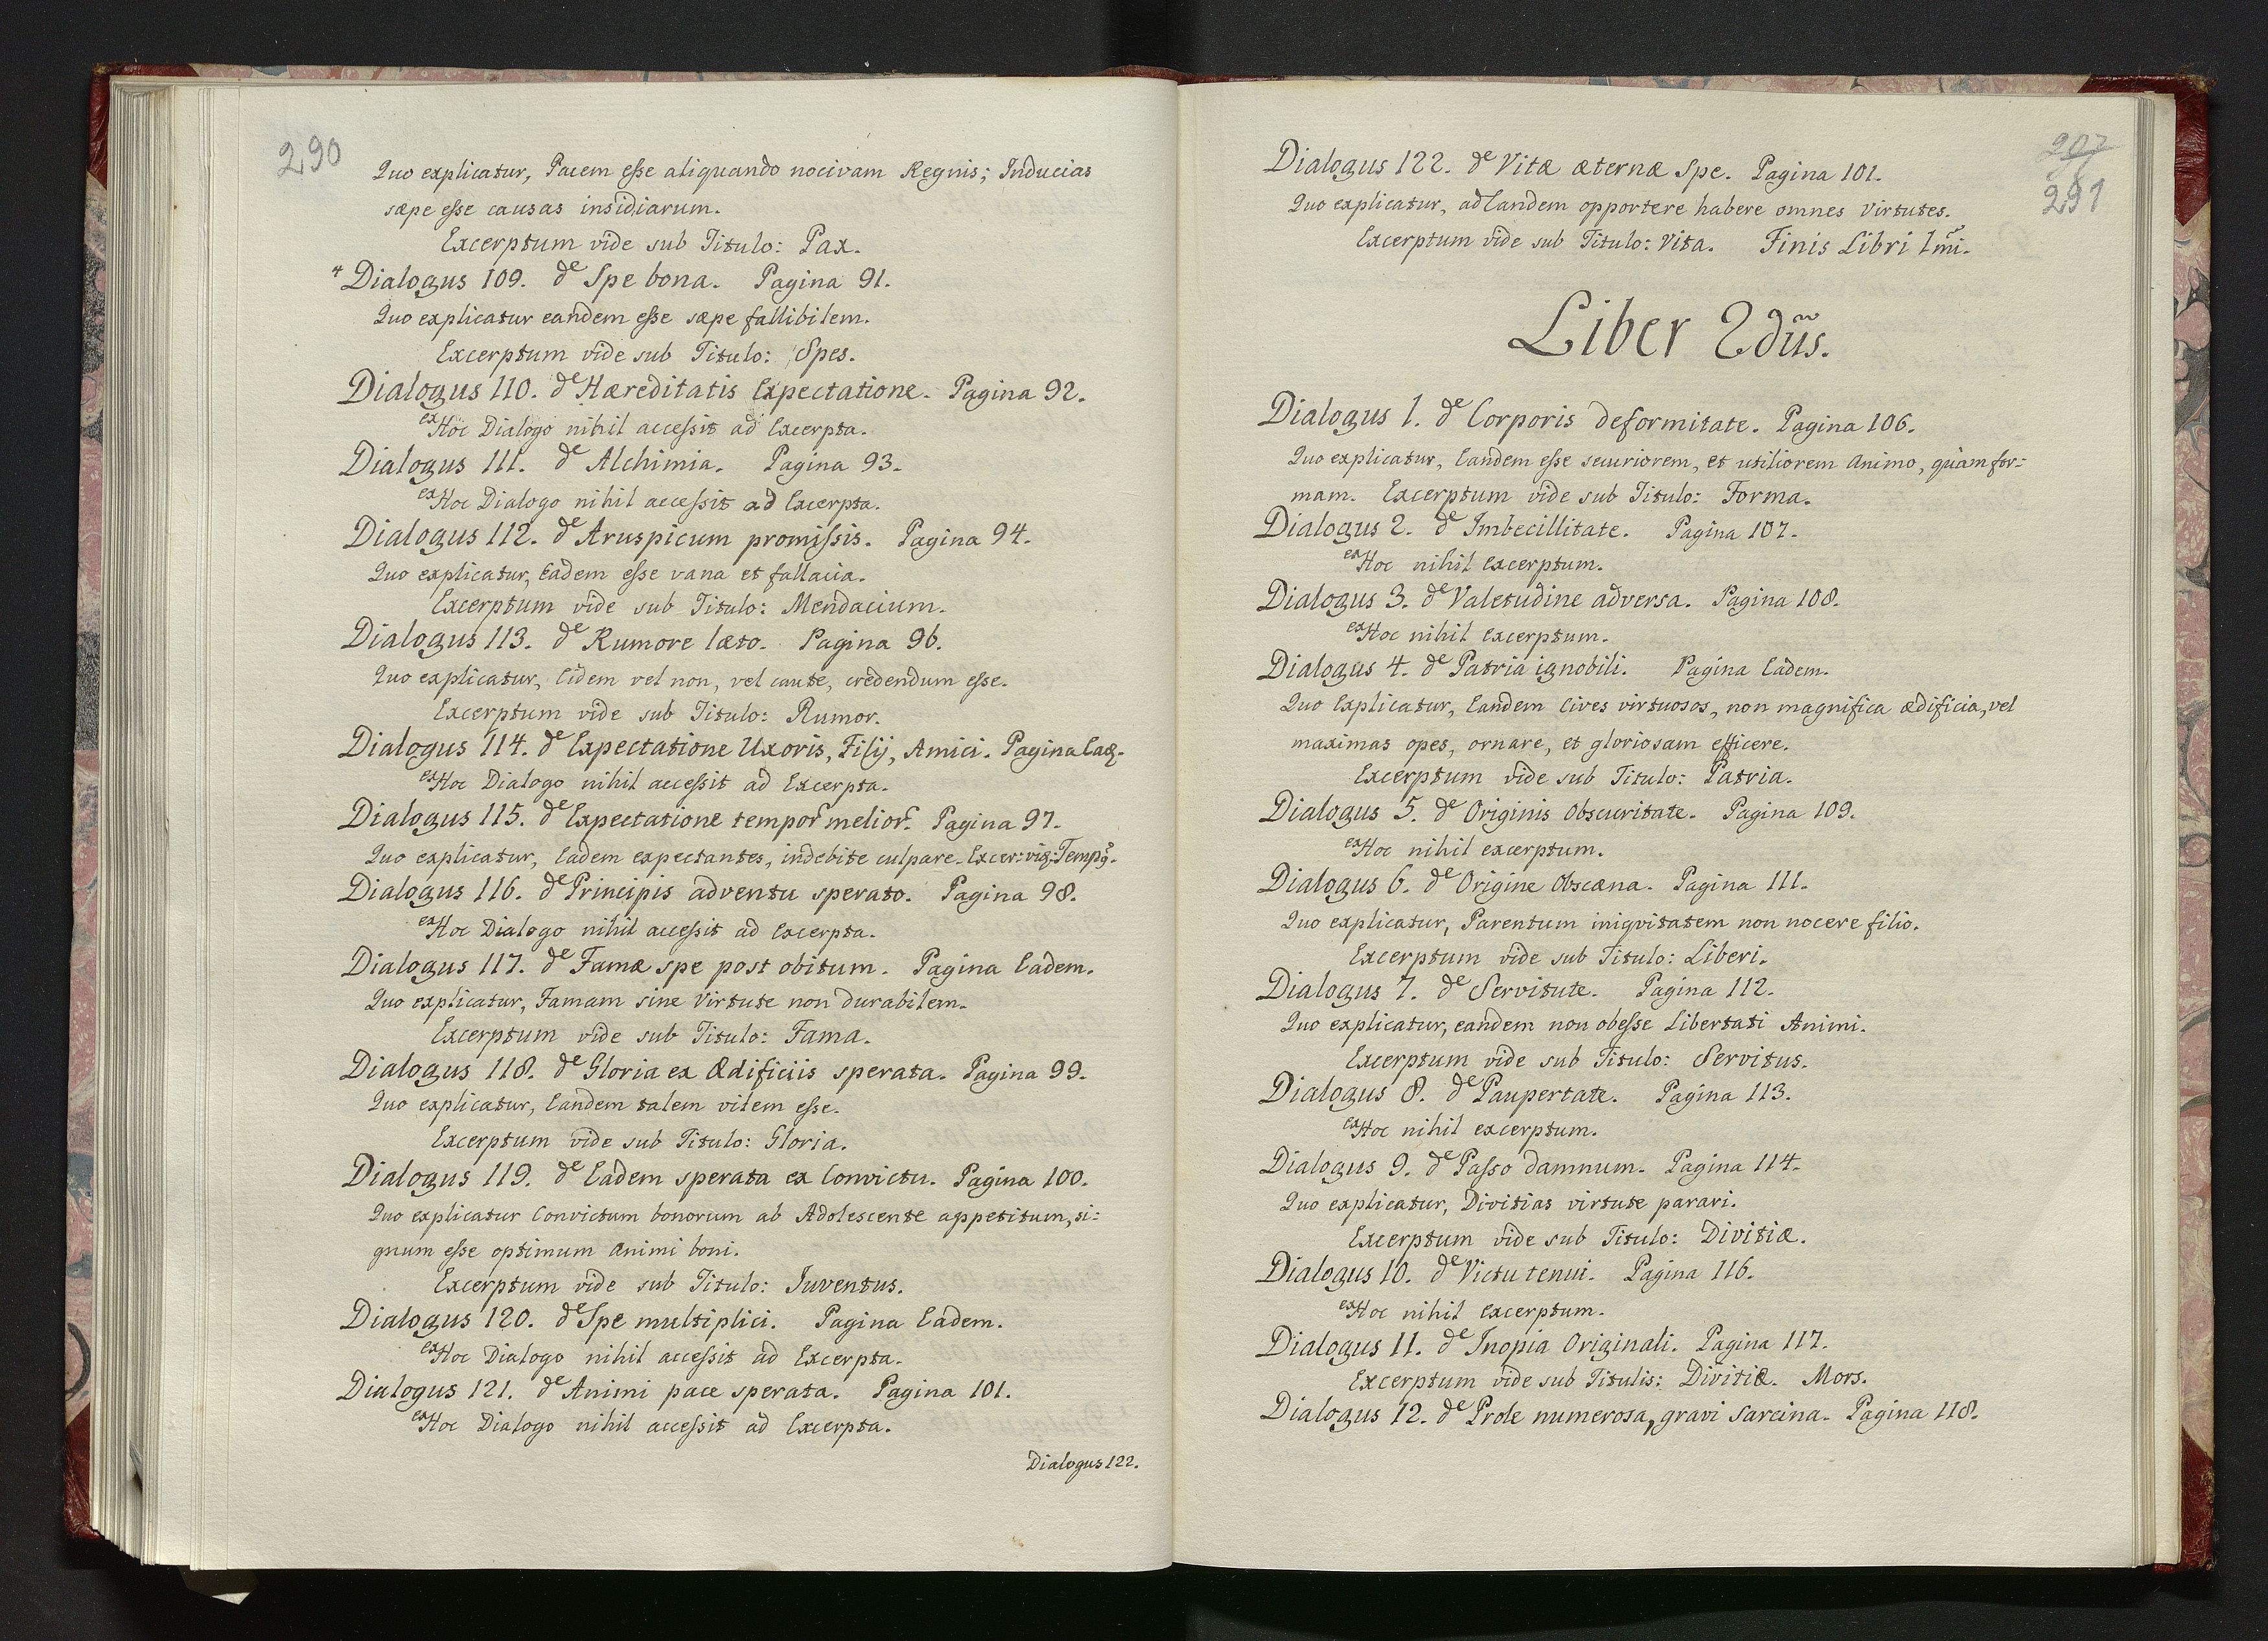 290
Quo explicatur, Pacem esse aliquando nocivam Regnis; Inducias
sæpe esse causas insidiarum.
Excerptum vide sub Titulo: Pax.
Dialogus 109. de Spe bona. Pagina 91.
Quo explicatur eandem esse sæpe fallibilem.
Excerptum vide sub Titulo: Spes.
Dialogus 110. de Hæreditatis Expectatione. Pagina 92.
ex Hoc Dialogo nihil accessit ad Excerpta.
Dialogus 111. de Alchimia. Pagina 93.
ex Hoc Dialogo nihil accessit ad Excerpta.
Dialogus 112. de Aruspicum promissis. Pagina 94.
Quo explicatur, Eadem esse vana et fallacia.
Excerptum vide sub Titulo: Mendacium.
Dialogus 113. de Rumore læto. Pagina 96.
Quo explicatur, Eidem vel non, vel caute, credendum esse.
Excerptum vide sub Titulo: Rumor.
Dialogus 114. de Expectatione Uxoris, Filij, Amici. Pagina
ex Hoc Dialogo nihil accessit ad Excerpta.
Dialogus 115. de Expectatione tempor melior. Pagina 97.
Quo explicatur, Eadem expectantes, indebite culpare. Excer:
Dialogus 116. de Principis adventu sperato. Pagina 98.
ex Hoc Dialogo nihil accessit ad Excerpta.
Dialogus 117. de Famæ spe post obitum. Pagina Eadem.
Quo explicatur, Famam sine Virtute non durabilem.
Excerptum vide sub Titulo: Fama.
Dialogus 118. de Gloria ex Ædificiis sperata. Pagina 99.
Quo explicatur, Eandem talem vilem esse.
Excerptum vide sub Titulo: Gloria.
Dialogus 119. de Eadem sperata ex Convictu. Pagina 100.
Quo explicatur Convictum bonorum ab Adolescente appetitum, si=
gnum esse optimum Animi boni.
Excerptum vide sub Titulo: Iuventus.
Dialogus 120. de Spe multiplici. Pagina Eadem.
ex Hoc Dialogo nihil accessit ad Excerpta.
Dialogus 121. de Animi pace sperata. Pagina 101.
ex Hoc Dialogo nihil accessit ad Excerpta.
Dialogus 122.
291
Dialogus 122. de Vitæ æternæ Spe. Pagina 101.
Quo explicatur, ad Eandem opportere habere omnes Virtutes.
Excerptum vide sub Titulo: Vita. Finis Libri 1mi.
Liber 2dũs.
Dialogus 1. de Corporis deformitate. Pagina 106.
Quo explicatur, Eandem esse securiorem, et utiliorem Animo, quàm for=
mam. Excerptum vide sub Titulo: Forma.
Dialogus 2. de Imbecillitate. Pagina 107.
ex Hoc nihil excerptum.
Dialogus 3. de Valetudine adversa. Pagina 108.
ex Hoc nihil excerptum.
Dialogus 4. de Patria ignobili. Pagina Eadem.
Quo Explicatur, Eandem Cives virtuosos, non magnifica ædificia, vel
maximas opes, ornare, et gloriosam efficere.
Excerptum vide sub Titulo: Patria.
Dialogus 5. de Originis Obscuritate. Pagina 109.
ex Hoc nihil excerptum.
Dialogus 6. de Origine Obscæna. Pagina 111.
Quo explicatur, Parentum iniqvitatem non nocere filio.
Excerptum vide sub Titulo: Liberi.
Dialogus 7. de Servitute. Pagina 112.
Quo explicatur, eandem non obesse Libertati Animi.
Excerptum vide sub Titulo: Servitus.
Dialogus 8. de Paupertate. Pagina 113.
ex Hoc nihil excerptum.
Dialogus 9. de Passo damnum. Pagina 114.
Quo explicatur, Divitias virtute parari.
Excerptum vide sub Titulo: Divitiæ.
Dialogus 10. de Victu tenui. Pagina 116.
ex Hoc nihil excerptum.
Dialogus 11. de Inopia Originali. Pagina 117.
Excerptum vide sub Titulis: Divitiæ. Mors.
Dialogus 12. de Prole numerosa, gravi Sarcina. Pagina 118.